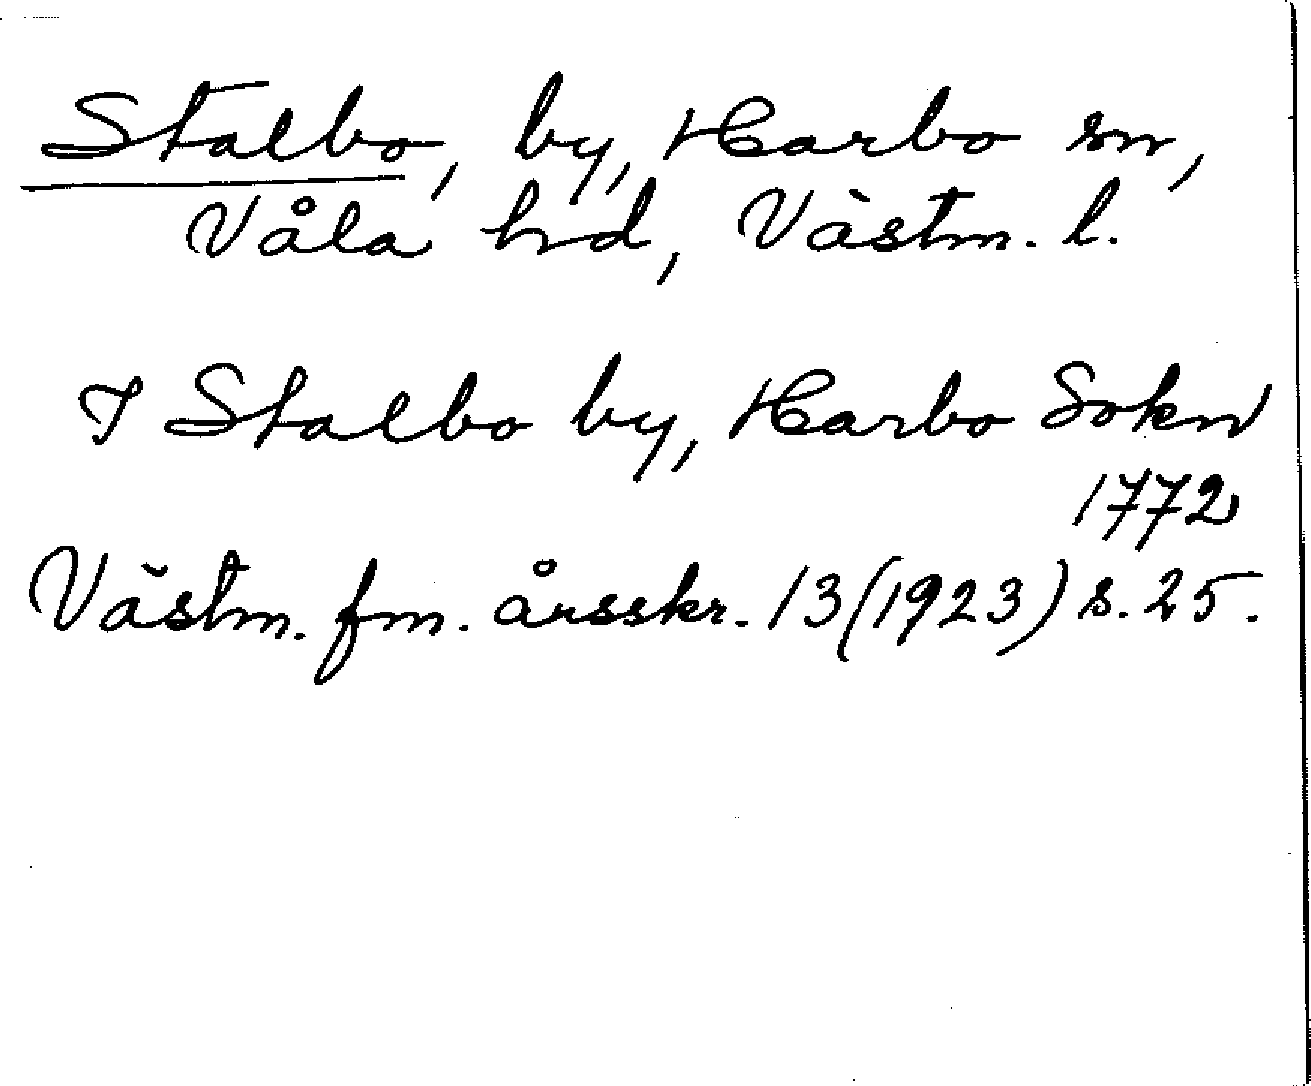 Stalbo, by, Harbo sn,
Våla hd, Västm. l.
I Stalbo by, Harbo Sokn
1772
Västm. fm. årsskr. 13 (1923) s. 25.